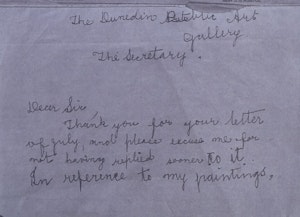 The Dunedin Public Art
Gallery
The Secretary.
Dear Sir,
Thank you for your letter
of July, and please excuse me for
not having replied sooner to it
In reference to my paintings,